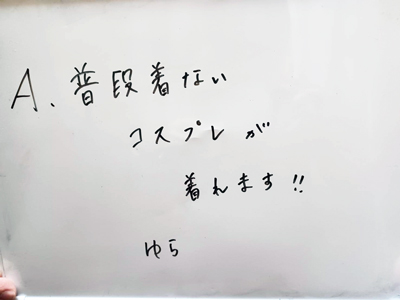 A、普段着ない
コスプレが
着れます!!
ゆら